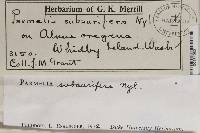 Herbarium of G. K. Merrill
Parmelia subaurifera Nyl.
on Alnus oregana
Whidby Island, Wash.
3150.
Coll. J. M. Grant
PARMELIA subaurifera Nyl.
Duke University Herbarium